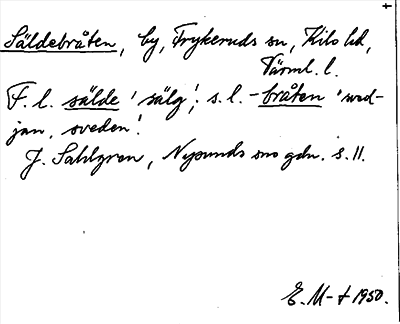 Säldebråten, by, Frykeruds sn, Kils hd,
Värml. l.
F. l. sälde 'sälg'; s. l. -bråten 'wed-
jan, sveden'.
J. Sahlgren, Nysunds sns gdn. s. 11.
E. M-t 1950.